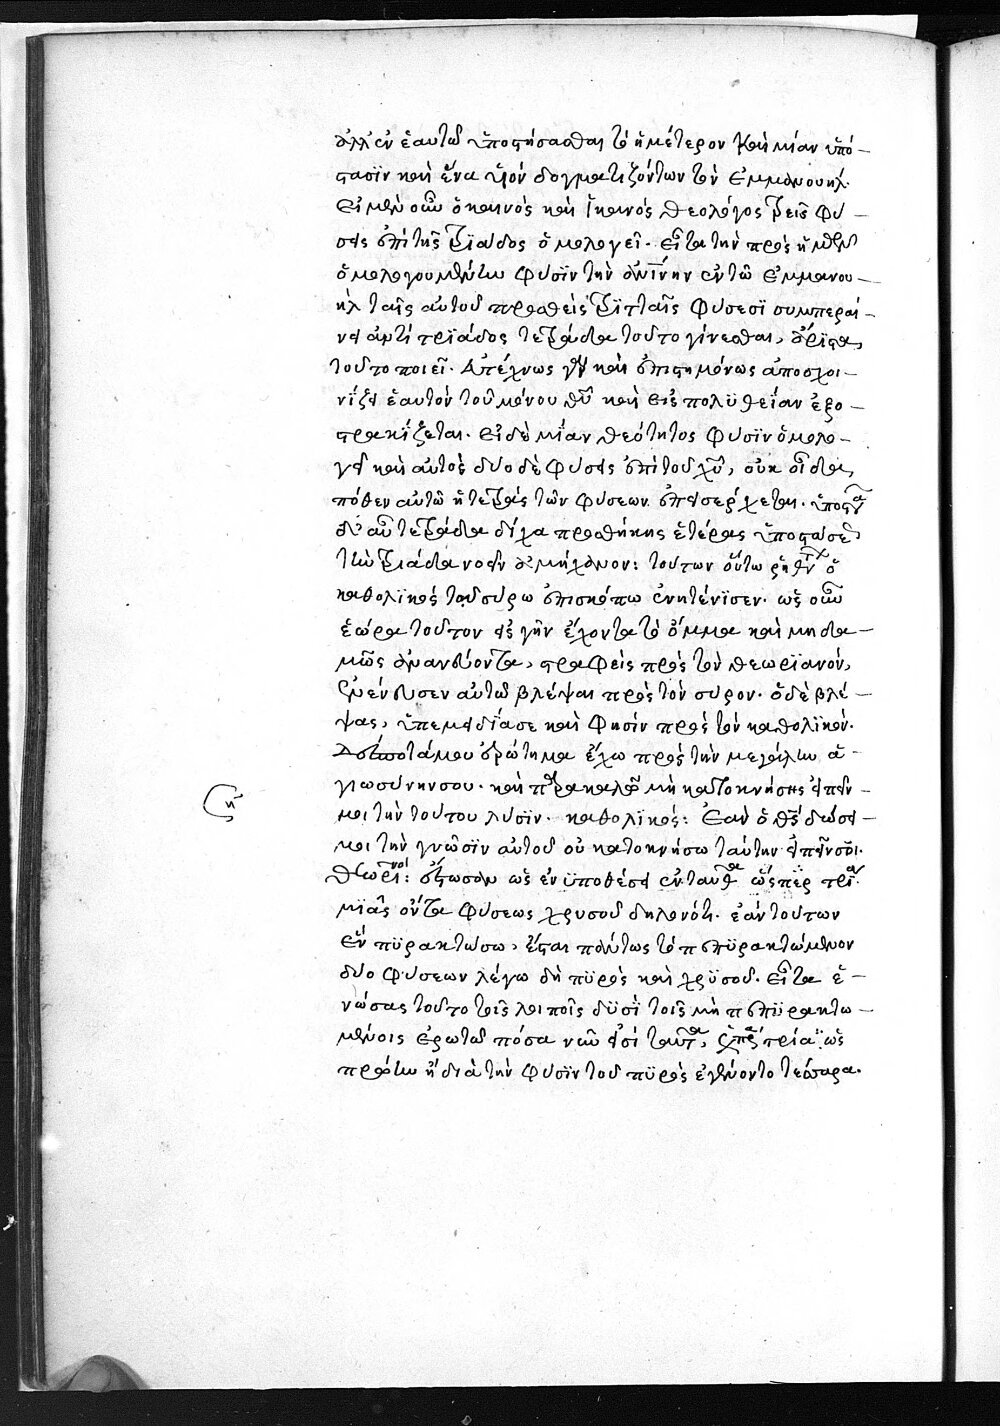 ἀλλ' ἐν ἑαυτῶ ὑποστήσασθαι τὸ ἡμέτερον καὶ μίαν ὑπό-
στασϊν καὶ ἕνα υἱὸν δογματιζόντων τὸν ἐμμανουήλ.
εἰ μὲν οὖν ὁ καινὸς καὶ ἱκανὸς θεολόγος τρεῖς φύ-
σεις ἐπὶ τῆς τρϊάδος ὁμολογεῖ. εἶτα τὴν πρὸς ἡμῶν
ὁμολογουμένην φύσϊν τὴν ἀν\ίνην ἐν τῶ ἐμμανου-
ὴλ ταῖς αὐτοῦ προσθεὶς τρϊσὶ ταῖς φύσεσϊ συμπεραί-
νει ἀντὶ τρϊάδος τετράδα τοῦτο γίνεσθαι, ἄρϊστα
τοῦτο ποιεῖ. ἀτέχνως γὰρ καὶ ἐπιστημόνως ἀποσχοι-
νίζει ἑαυτὸν τοῦ μόνου θ͞υ καὶ εἰς πολϋθεΐαν ἐξο-
στρακίζεται. εἰ δὲ μίαν θεότητος φύσϊν ὁμολο-
γεῖ καὶ αὐτὸς δύο δὲ φύσεις ἐπὶ τοῦ χ͞υ, οὐκ οἶδα
πόθεν αὐτῶ ἡ τετρὰς τῶν φύσεων ἐπεισέρχεται.
δι' αὖ τετράδα δίχα προσθήκης ἑτέρας ὑποστάσεως
τὴν τρϊάδα νοεῖν ἀμήχανον: τούτων οὕτω ῥηθέντων ὁ
καθολϊκὸς τῶ σύρω ἐπισκόπω ἐνητένϊσεν. ὡς οὖν
ἑώρα τοῦτον εἰς γῆν ἔχοντα τὸ ὄμμα καὶ μηδα-
μῶς ἀνανεύοντα, στραφεὶς πρὸς τὸν θεωρϊανὸν,
ἐνένευσεν αὐτῶ βλέψαι πρὸς τὸν σύρον. ὁ δὲ βλέ-
ψας, ὑπεμειδίασε καὶ φησὶν πρὸς τὸν καθολϊκόν.
δέσποτά μου ἐρώτημα ἔχω πρὸς τὴν μεγάλην ἁ-
γιωσύνην σου. καὶ παρακαλῶ μὴ κατοκνήσης εἰπεῖν
μοι τὴν τούτου λύσϊν. καθολϊκός: ἐὰν ὁ θ͞ς δώσει
μοι τὴν γνῶσϊν αὐτοῦ οὐ κατοκνήσω ταύτην εἰπεῖν σοι.
η´
θεωριανός: ἔστωσαν ὡς ἐν ϋποθέσει ἐνταῦθα ὥσπερ τρία
μϊᾶς ὄντα φύσεως χρυσοῦ δηλονότι. ἐὰν τούτων
ἓν πϋρακτώσω, ἔσται πάντως τὸ πεπϋρακτωμένον
δύο φύσεων λέγω δὴ πϋρὸς καὶ χρϋσοῦ. εἶτα ἑ-
νώσας τοῦτο τοῖς λοιποῖς δϋσὶ τοῖς μὴ πεπϋρακτω-
μένοις ἐρωτῶ πόσα νῦν εἰσὶ ταῦτα, τρία ὡς
πρώην ἢ διὰ τὴν φύσϊν τοῦ πϋρὸς ἐγένοντο τέσσαρα.